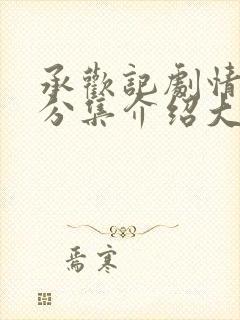 承歡記劇情
分集介绍大
焉寒